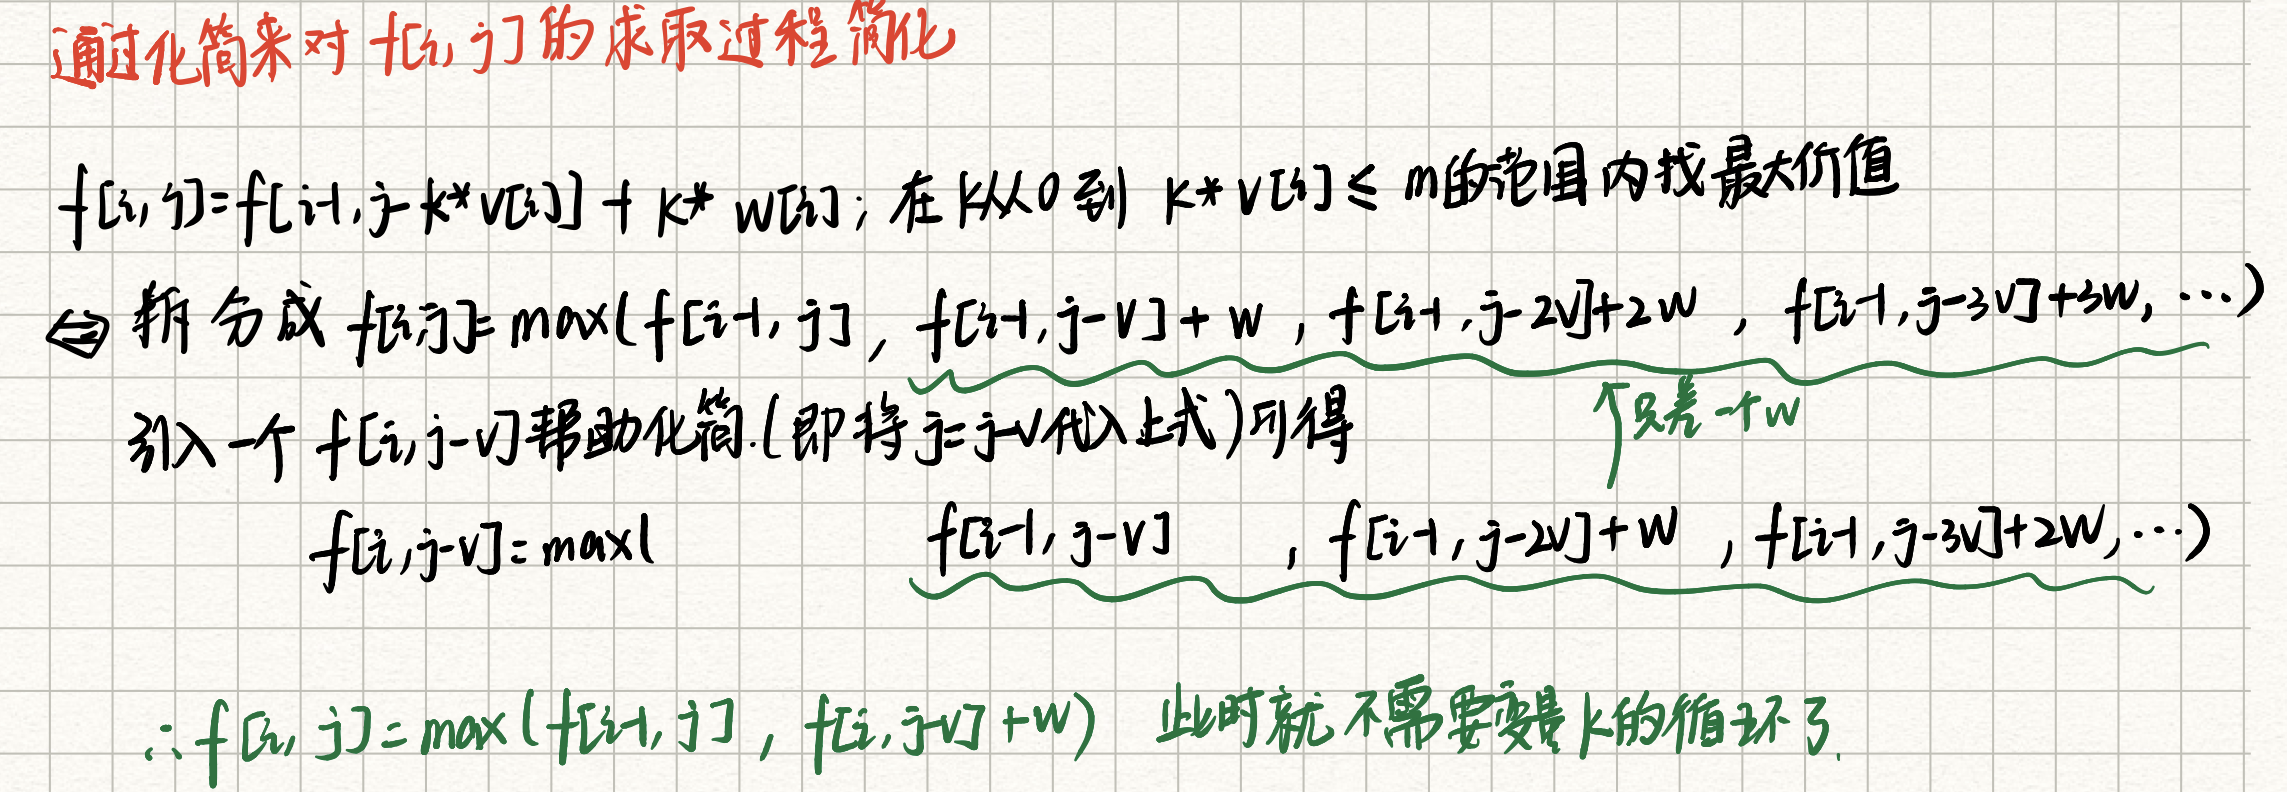 通过化简来对 f[i, j] 的求取过程简化
f[i, j]=f[i-1, j-k*v[i]] + k* w[i]; 在k从0到 k*v[i] ≤ m的范围内找最大价值
⇔ 拆分成 f[i,j]= max(f[i-1, j], f[i-1, j-v]+w, f[i-1, j-2v]+2w, f[i-1, j-3v]+3w, ...)
引入一个 f[i, j-v]帮助化简.(即将j=j-v代入上式)可得
↑只差一个w
f[i, j-v]= max( f[i-1, j-v], f[i-1, j-2v]+w, f[i-1, j-3v]+2w, ...)
∴ f[i, j]= max(f[i-1, j], f[i, j-v]+w) 此时就不需要变量k的循环了.